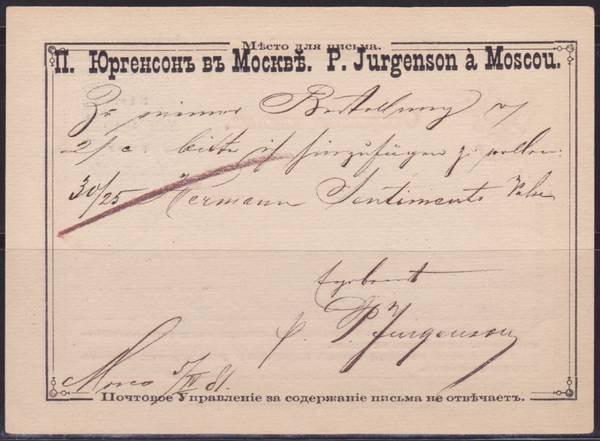 Мѣсто для письма.
П. Юргенсонъ въ Москвѣ. P. Jurgenson à Moscou.
Zu meiner Bestellung v/
2/c bitte ich hinzufügen zu wollen:
30/25 Hermann Sentiments Valse
ergebenst
P. Jurgenson
Почтовое Управленіе за содержаніе письма не отвѣчаетъ.